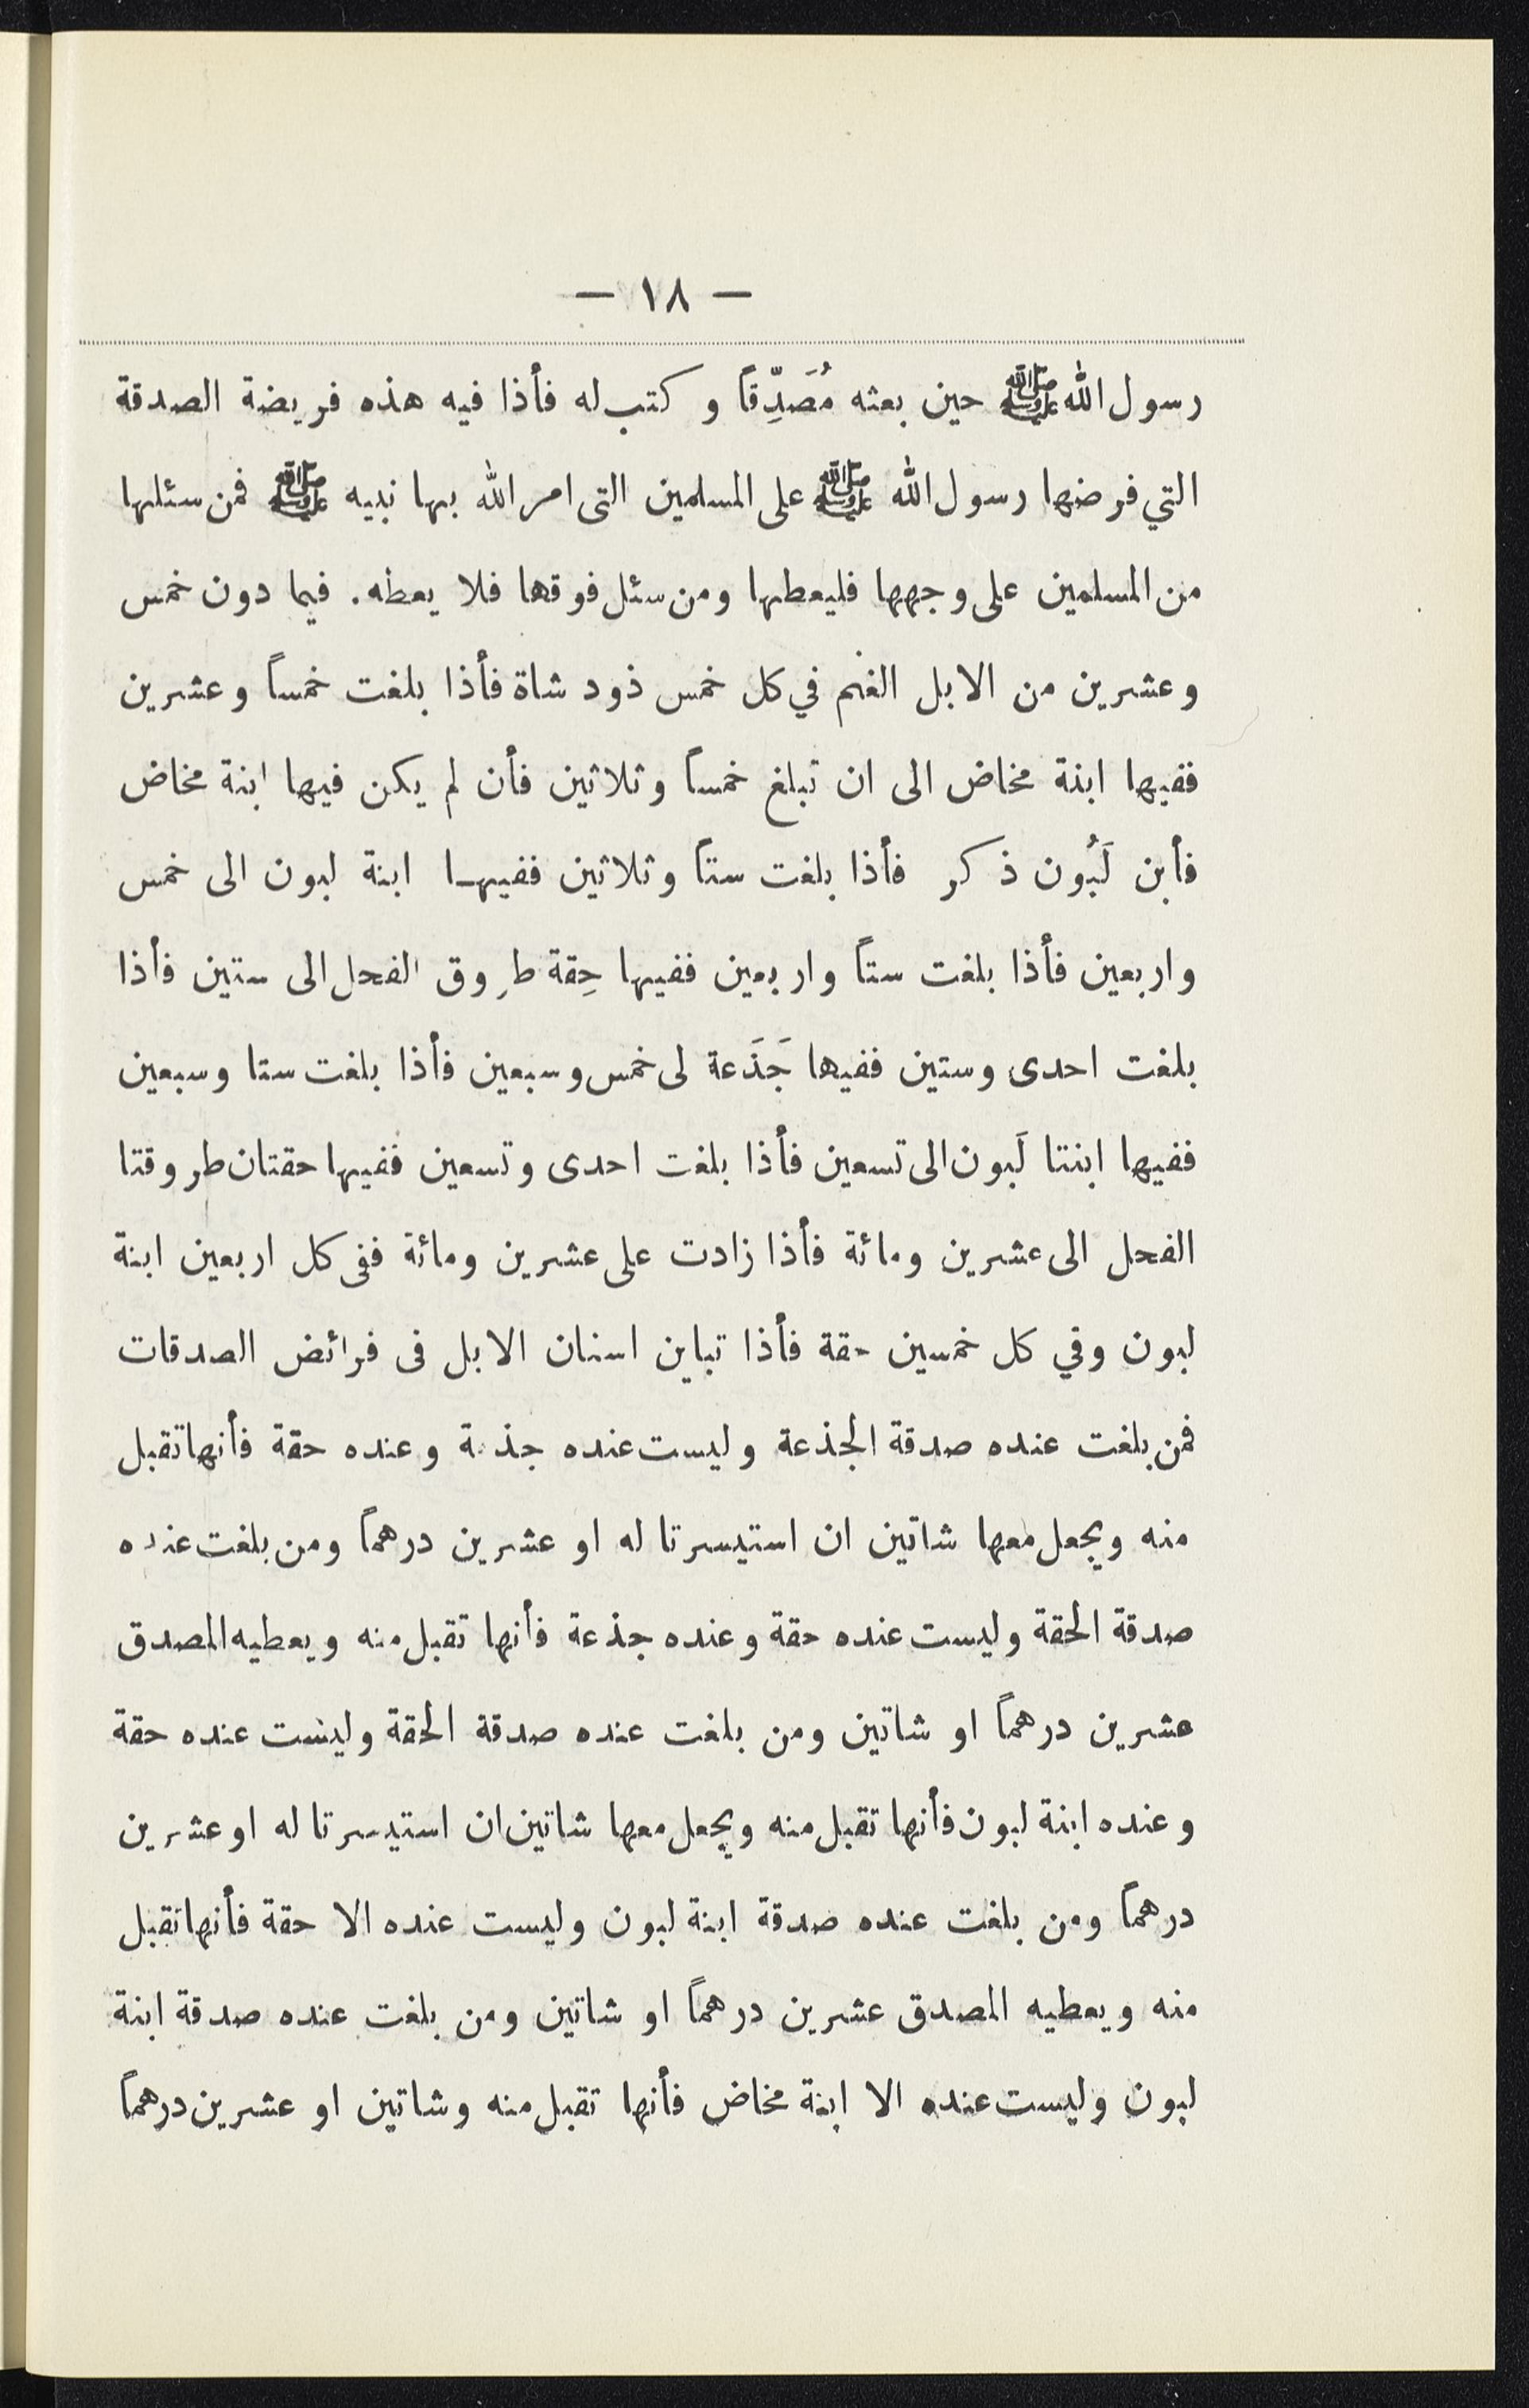 — ١٨ —
رسول الله ﷺ حين بعثه مُصَدِّقاً و كتب له فأذا فيه هذه فريضة الصدقة
التي فرضها رسول الله ﷺ على المسلمين التى امر الله بها نبيه ﷺ فمن سئلها
من المسلمين على وجهها فليعطها ومن سئل فوقها فلا يعطه. فيما دون خمس
وعشرين من الابل الغنم في كل خمس ذود شاة فأذا بلغت خمساً وعشرين
ففيها ابنة مخاض الى ان تبلغ خمساً وثلاثين فأن لم يكن فيها ابنة مخاض
فأبن لَبُون ذكر فأذا بلغت ستاً وثلاثين ففيها ابنة لبون الى خمس
واربعين فأذا بلغت ستاً واربعين ففيها حِقة طروق الفحل الى ستين فأذا
بلغت احدى وستين ففيها جَذَعة لى خمس وسبعين فأذا بلغت ستا وسبعين
ففيها ابنتا لَبون الى تسعين فأذا بلغت احدى وتسعين ففيها حقتان طروقتا
الفحل الى عشرين ومائة فأذا زادت على عشرين ومائة ففى كل اربعين ابنة
لبون وفي كل خمسين حقة فأذا تباين اسنان الابل فى فرائض الصدقات
فمن بلغت عنده صدقة الجذعة وليست عنده جذعة وعنده حقة فأنها تقبل
منه ويجعل معها شاتين ان استيسرتا له او عشرين درهماً ومن بلغت عنده
صدقة الحقة وليست عنده حقة وعنده جذعة فأنها تقبل منه ويعطيه المصدق
عشرين درهماً او شاتين ومن بلغت عنده صدقة الحقة وليست عنده حقة
وعنده ابنة لبون فأنها تقبل منه ويجعل معها شاتين ان استيسرتا له او عشرين
درهماً ومن بلغت عنده صدقة ابنة لبون وليست عنده الا حقة فأنها تقبل
منه ويعطيه المصدق عشرين درهماً او شاتين ومن بلغت عنده صدقة ابنة
لبون وليست عنده الا ابنة مخاض فأنها تقبل منه وشاتين او عشرين درهماً